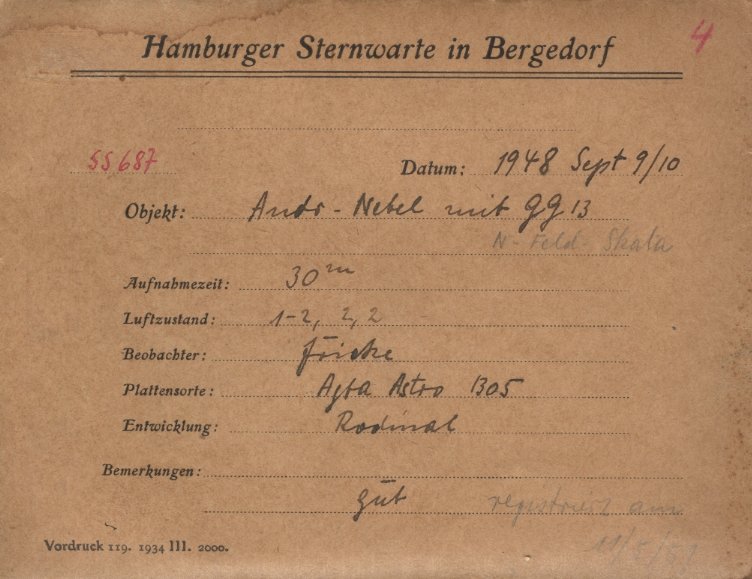 Hamburger Sternwarte in Bergedorf
4
SS 687
Datum: 1948 Sept 9/10
Objekt: Andr-Nebel mit GG 13
N-Feld-Skala
Aufnahmezeit: 30m
Luftzustand: 1-2, 2, 2
Beobachter: Fricke
Plattensorte: Agfa Astro 1305
Entwicklung: Rodinal
Bemerkungen:
gut
registriert am
Vordruck 119. 1934 III. 2000.